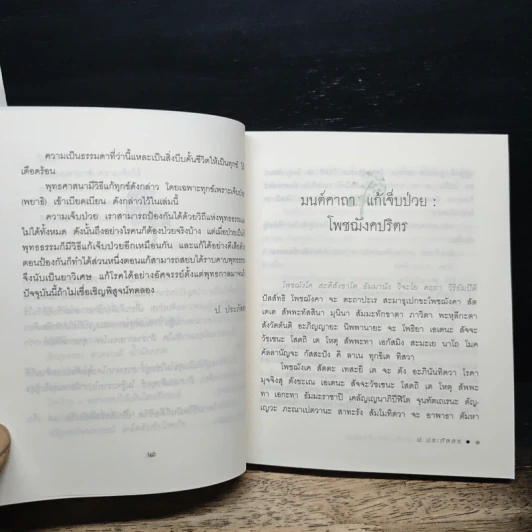 ความเป็นธรรมดาที่ว่านี้แหละเป็นสิ่งบีบคั้นชีวิตให้เป็นทุกข์
เดือดร้อน
พุทธศาสนามีวิธีแก้ทุกข์ดังกล่าว โดยเฉพาะทุกข์เพราะเจ็บป่วย
(พยาธิ) เข้าเบียดเบียน ดังกล่าวไว้ในเล่มนี้
ความเจ็บป่วย เราสามารถป้องกันได้ด้วยวิถีแห่งพุทธธรรม
ไม่ได้ทั้งหมด ดังนั้นถึงอย่างไรคนก็ต้องป่วยจริงบ้าง แต่เมื่อป่วย
พุทธธรรมก็มีวิธีแก้เจ็บป่วยอีกเหมือนกัน และแก้ได้อย่างดีเสียด้วย
ตอนป้องกันก็ทำได้ส่วนหนึ่งตอนแก้สามารถสยบได้ราบคาบพุทธธรรม
จึงนับเป็นยาวิเศษ แก้โรคได้อย่างอัศจรรย์ตั้งแต่พุทธกาลมาจน
ปัจจุบันนี้ถ้าไม่เชื่อเชิญพิสูจน์ทดลอง
มนต์คาถา แก้เจ็บป่วย :
โพชฌังคปริตร
โพชฌังโค สะติสังขาโต ธัมมานัง วิจะโย ตะถา วิริยัมปีติ
ปัสสัทธิ โพชฌังคา จะ ตะถาปะเร สะมาธุเปกขะโพชฌังคา สัต
เตเต สัพพะทัสสินา มุนินา สัมมะทักขาตา ภาวิตา พะหุลีกะตา
สังวัตตันติ อะภิญญายะ นิพพานายะ จะ โพธิยา เอเตนะ สัจจะ
วัชเชนะ โสตถิ เต โหตุ สัพพะทา เอกัสมิง สะมะเย นาโถ โมค
คัลลานัญจะ กัสสะปัง คิ ลาเน ทุกขิเต ทิสวา
โพชฌังเค สัตตะ เทสะยิ เต จะ ตัง อะภินันทิตวา โรคา
มุจจิงสุ ตังขะเณ เอเตนะ สัจจะวัชเชนะ โสตถิ เต โหตุ สัพพะ
ทา เอกะทา ธัมมะราชาปิ เคลัญญูนาภิปีฬิโต จุนทัตเถเรนะ ตัญ
เญวะ ภะณาเปตวานะ สาทะรัง สัมโมทิตวา จะ อาพาธา ตัมหา